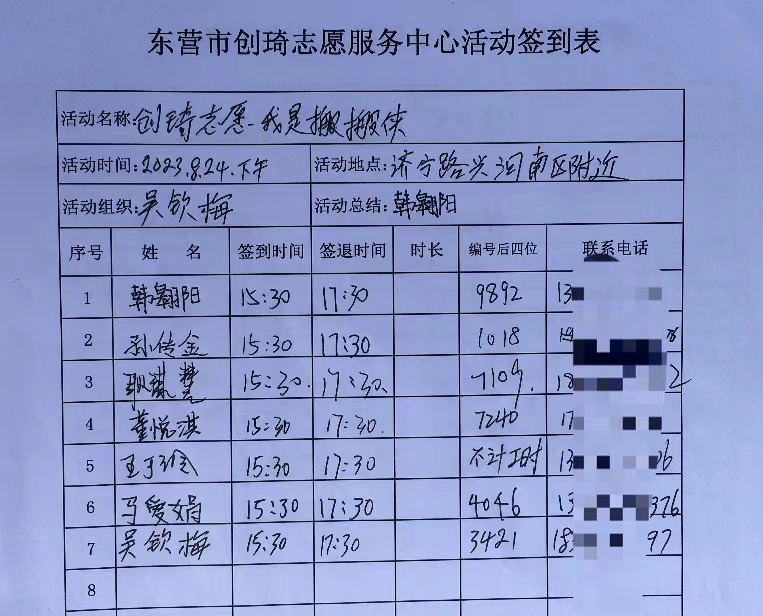 东营市创琦志愿服务中心活动签到表
活动名称:创琦志愿-我是搬搬侠
活动时间:2023.8.24.下午 活动地点:济宁路兴河南区附近
活动组织:吴钦梅 活动总结:韩翱阳
序号 姓 名 签到时间 签退时间 时长 编号后四位 联系电话
1 韩翱阳 15:30 17:30 9892 13
2 孙传金 15:30 17:30 1018
3 15:30. 17:30. 7109. 18 2
4 董悦淇 15:30 17:30. 7240 17
5 15:30 17:30 不计工时 13 26
6 马爱娟 15:30 17:30 4046 13 376
7 吴钦梅 15:30 17:30 3421 18 97
8